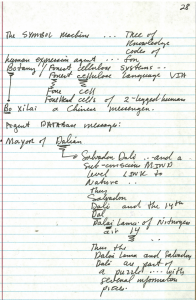 28
The SYMBOL Machine ... Tree of
Knowledge
codes of
human expression agent ... for
Botany / Ancient cellulose systems ...
Ancient cellulose language VIA
Four cell
Four Red cells of 2-legged human
Bo Xilai a Chinese messenger.
Agent DATABase messages:
• Mayor of Dalian
Salvador Dali ... and a
Sub-conscious MIND
level LINK to
Nature ...
Then
Salvador
Dali and the 14th
Dal
Dalai Lama: of Nitrogen
air 14
Thus the
Dalai Lama and Salvador
Dali are part of
a puzzle ... with
several information
pieces.